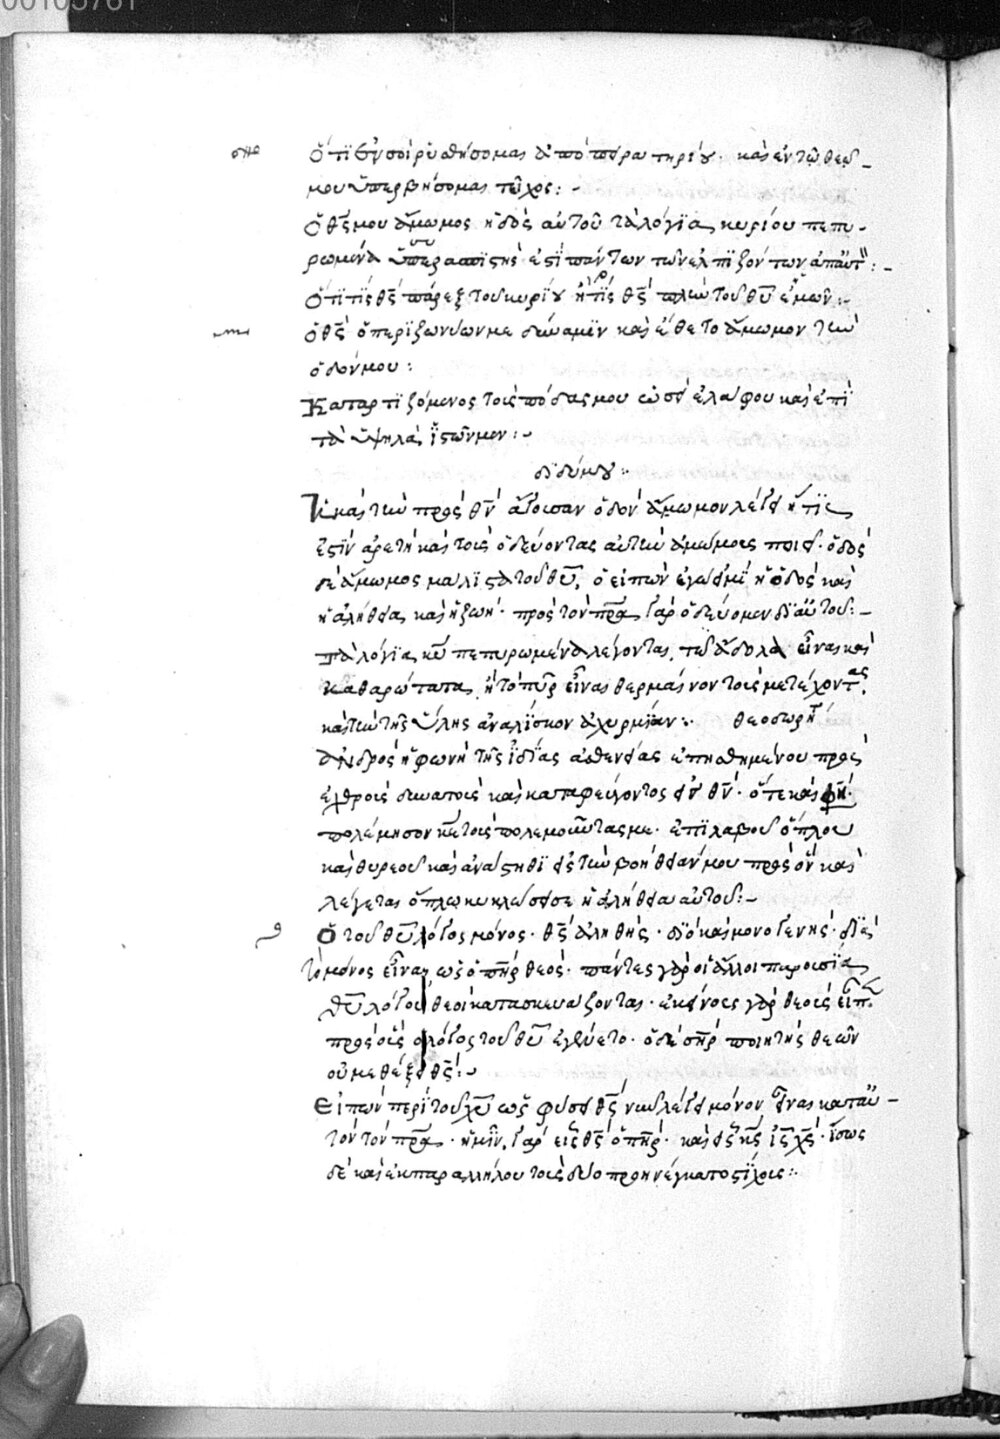 00105761
Ὅτι ἐν σοὶ ῥυσθήσομαι ἀπὸ πειρατηρίου· καὶ ἐν τῷ θεῷ
μου ὑπερβήσομαι τεῖχος:-
Ὁ θς μου ἄμωμος ἡ ὁδὸς αὐτοῦ τὰ λόγια κυρίου πεπυ-
ρωμένα ὑπερασπιστὴς ἐστὶ πάντων τῶν ἐλπιζόντων ἐπ' αὐτ:-
Ὅτι τίς θς πάρεξ τοῦ κυρίου ἢ τίς θς πλὴν τοῦ θυ ἡμῶν:-
Ὁ θς ὁ περιζωννύων με δύναμιν καὶ ἔθετο ἄμωμον τὴν
ὁδόν μου:
Καταρτιζόμενος τοὺς πόδας μου ὡσεὶ ἐλάφου καὶ ἐπὶ
τὰ ὑψηλὰ ἱστῶν με:-
διδύμου:
καὶ τὴν πρὸς θν ἄγουσαν ὁδὸν ἄμωμον λέγει ἥτις
ἐστὶν ἀρετὴ καὶ τοὺς ὁδεύοντας αὐτὴν ἀμώμους ποιεῖ· ὁδὸς
δὲ ἄμωμος μάλιστα τοῦ θυ, ὁ εἰπὼν ἐγώ εἰμι ἡ ὁδὸς καὶ
ἡ ἀλήθεια καὶ ἡ ζωή· πρὸς τὸν πρα γὰρ ὁδεύομεν δι' αὐτοῦ:-
τὰ λόγια κυ πεπυρωμένα λέγονται, τῷ ἄδολα εἶναι καὶ
καθαρώτατα, ἢ τὸ πῦρ εἶναι θερμαῖνον τοὺς μετέχοντας,
καὶ τὴν τῆς ὕλης ἀναλίσκον ἀχυρμιάν:· θεοδωρήτ
ἀνδρὸς ἡ φωνὴ τῆς ἰδίας ἀσθενείας ἐπῃσθημένου πρὸς
ἐχθροὺς δυνατοὺς καὶ καταφεύγοντος ἐν θν· ὅτε καὶ φη·
πολέμησον κε τοὺς πολεμοῦντας με· ἐπιλαβοῦ ὅπλου
καὶ θυρεοῦ καὶ ἀνάστηθι εἰς τὴν βοήθειάν μου πρὸς ὃν καὶ
λέγεται ὅπλῳ κυκλώσει σε ἡ ἀλήθεια αὐτοῦ:-
Ὁ τοῦ θυ λόγος μόνος· θς ἀληθής· διὸ καὶ μονογενής· διὰ
τὸ μόνος εἶναι ὡς ὁ πηρ θεός· πάντες γὰρ οἱ ἄλλοι παρουσίᾳ
θυ λόγου θεοὶ κατασκευάζονται· ἐκείνους γὰρ θεοὺς εἶπ
πρὸς οὓς ὁ λόγος τοῦ θυ ἐγένετο· ὁ δὲ σηρ ποιητὴς θεῶν
οὐ μεθέξει θς:-
Εἰπὼν περὶ τοῦ χυ ὡς φύσει θς νῦν λέγει μόνον εἶναι κατ' αὐ-
τὸν τὸν πρα· ἡμῖν, γὰρ εἷς θς ὁ πηρ· καὶ εἷς κς ις χς· ἴσως
δὲ καὶ ἐκ παραλλήλου τοὺς δύο προηνέγκατο στίχους:-